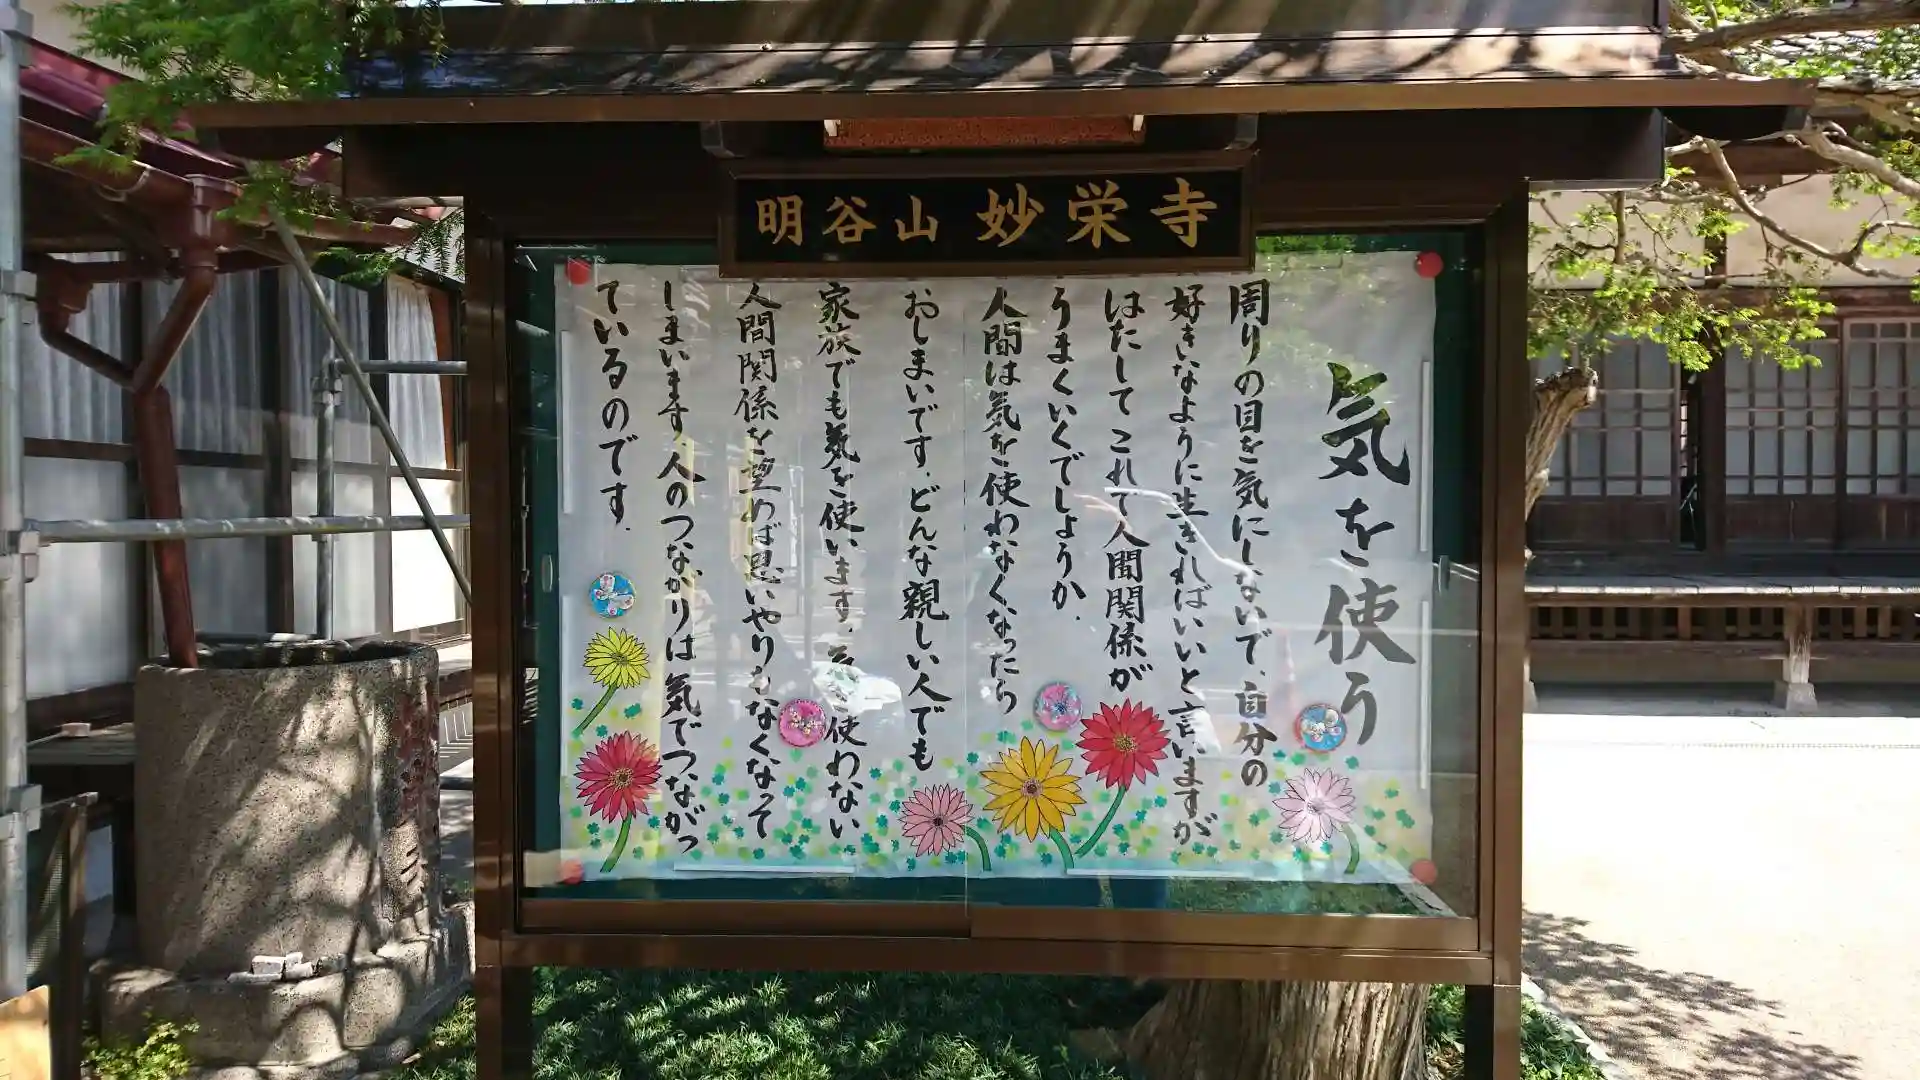 明谷山 妙栄寺
気を使う
周りの目を気にしないで、自分の
好きなように生きればいいと言いますが
はたしてこれで人間関係が
うまくいくでしょうか.
人間は気を使わなくなったら
おしまいです.どんな親しい人でも
家族でも気を使います. 使わない
人間関係を望めば思いやりもなくなって
しまいます.人のつながりは気でつながっ
ているのです.